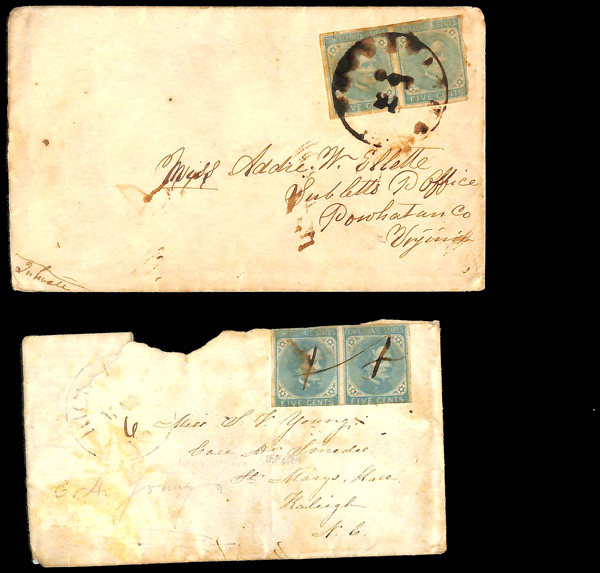 CONFEDERATE STATES CONFEDERATE STATES
FIVE CENTS FIVE CENTS
Miss Addie. W. Ellette
Subletts P Office
Powhatan Co
Virginia
CONFEDERATE STATES CONFEDERATE STATES
FIVE CENTS FIVE CENTS
6
Miss S. V. Young
Care Dr Smedes
St Marys,
Raleigh
N. C.